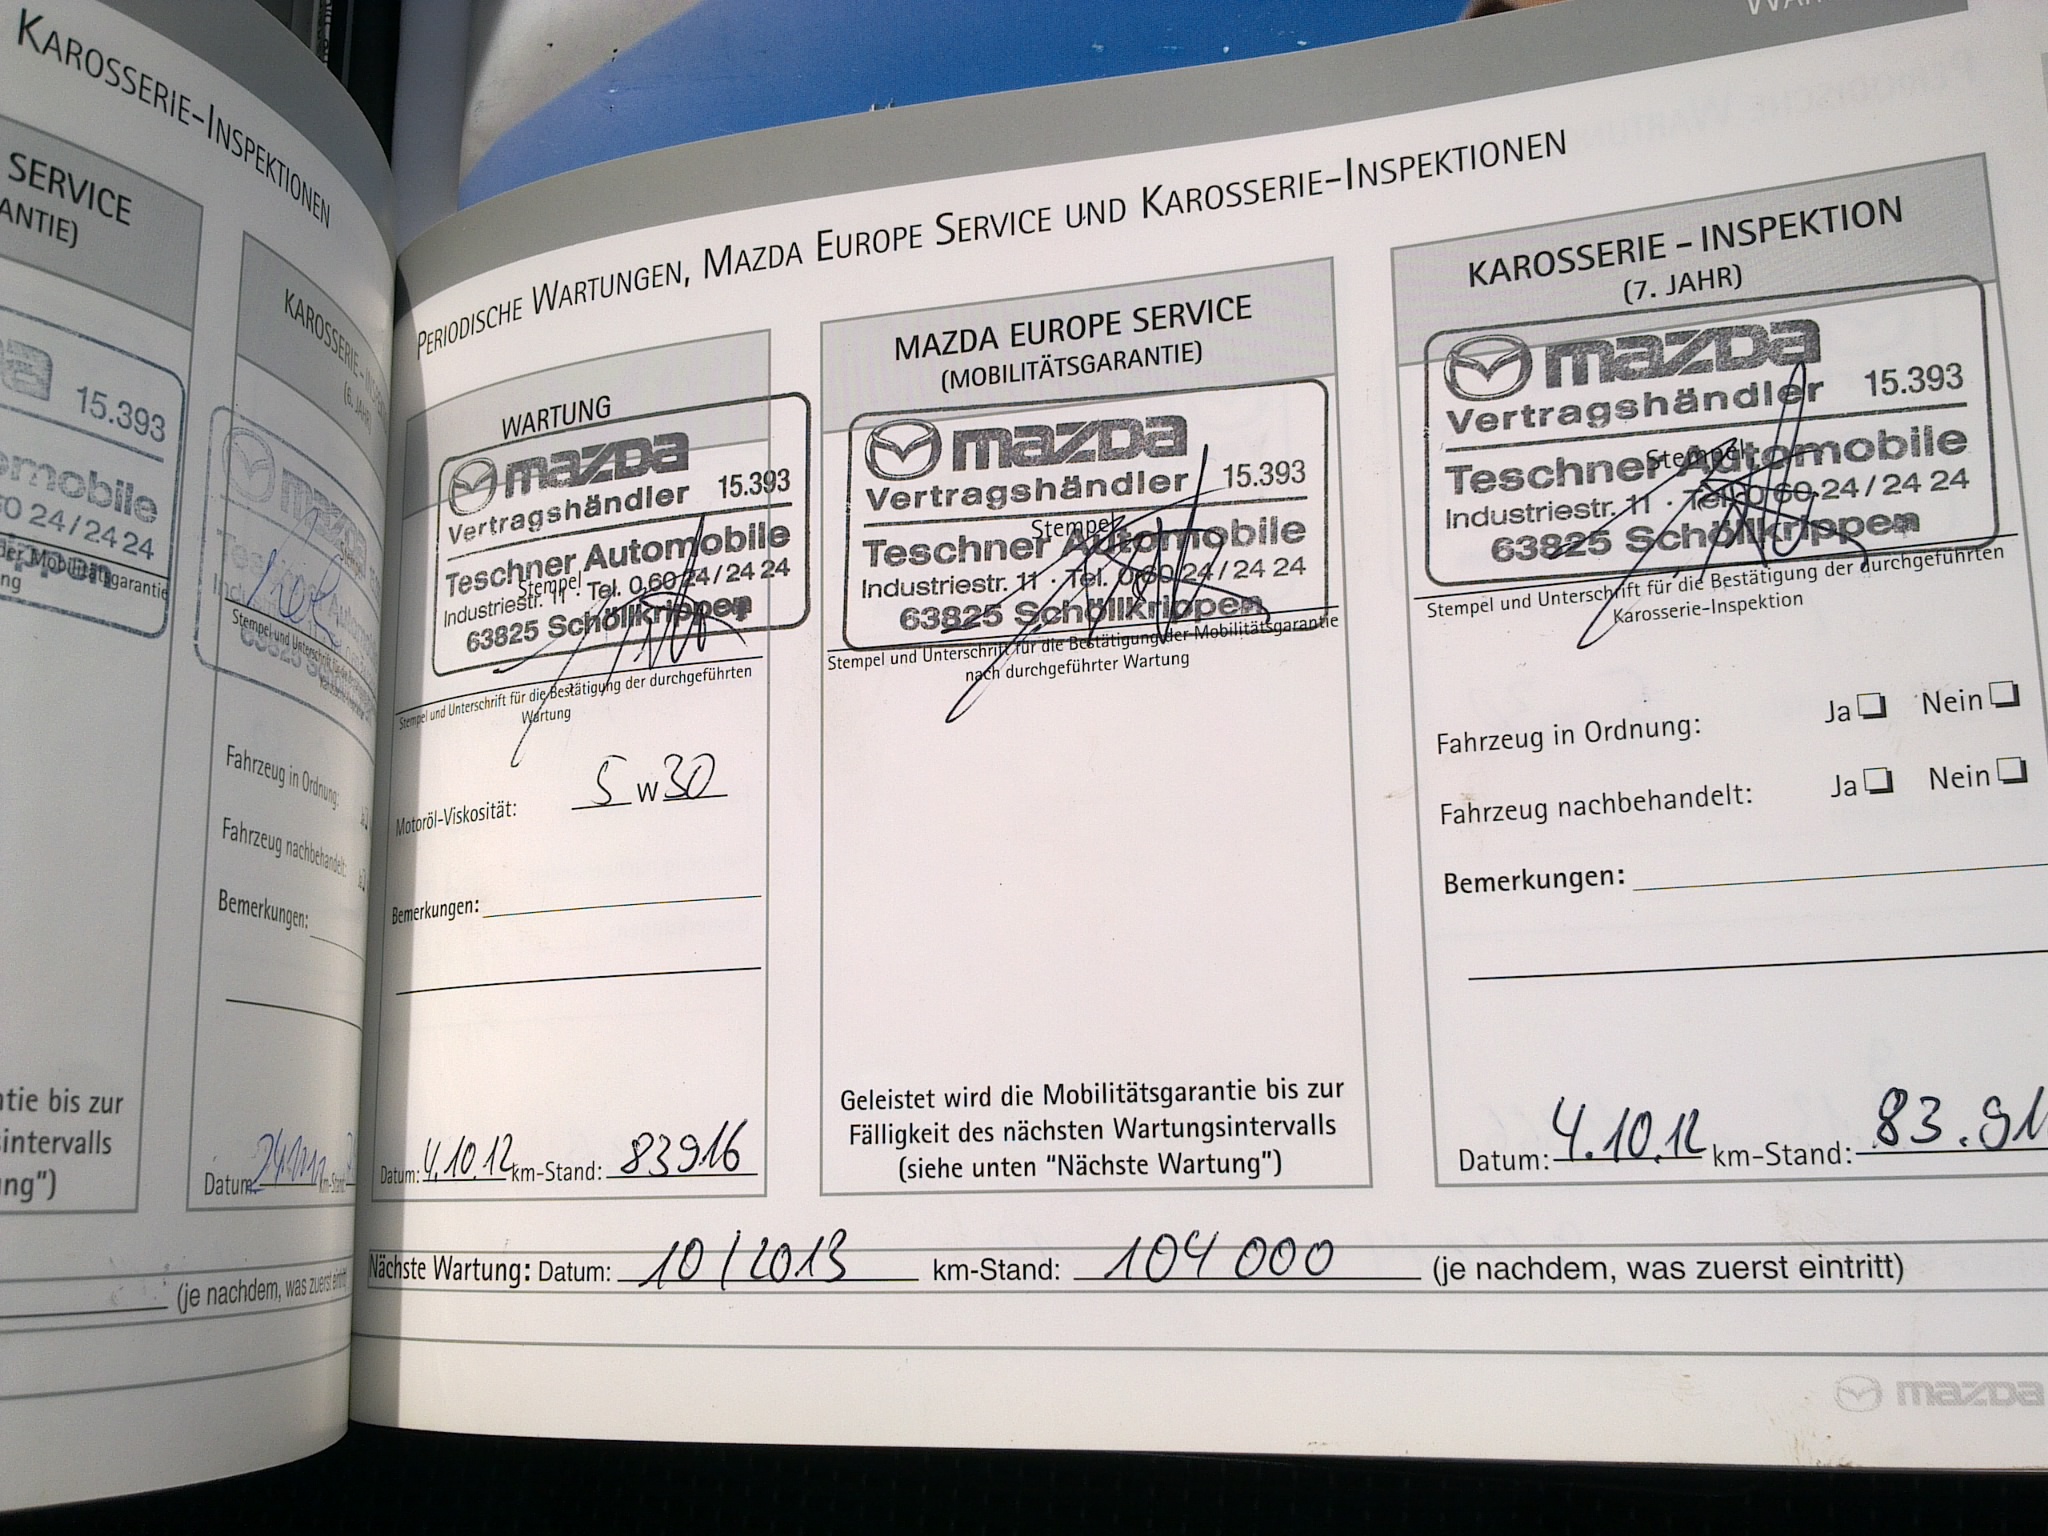 KAROSSERIE-INSPEKTIONEN
SERVICE
ANTIE)
15.393
omobile
60 24/24 24
der Mobilitätsgarantie
ng
KAROSSERIE - INSPE
(6. JAHR)
Fahrzeug in Ordnung:
Fahrzeug nachbehandelt:
Bemerkungen:
ntie bis zur
sintervalls
ung")
Datum:
(je nachdem, was zuerst eintritt
PERIODISCHE WARTUNGEN, MAZDA EUROPE SERVICE UND KAROSSERIE-INSPEKTIONEN
WARTUNG
mazda
Vertragshändler 15.393
Teschner Automobile
Stempel
Industriestr. 11 · Tel. 0 60 24 / 24 24
63825 Schöllkrippen
Stempel und Unterschrift für die Bestätigung der durchgeführten
Wartung
Motoröl-Viskosität: 5 W 30
Bemerkungen:
Datum: 4.10.12 km-Stand: 83916
MAZDA EUROPE SERVICE
(MOBILITÄTSGARANTIE)
mazda
Vertragshändler 15.393
Stempel
Teschner Automobile
Industriestr. 11 · Tel. 0 60 24 / 24 24
63825 Schöllkrippen
Stempel und Unterschrift für die Bestätigung der Mobilitätsgarantie
nach durchgeführter Wartung
Geleistet wird die Mobilitätsgarantie bis zur
Fälligkeit des nächsten Wartungsintervalls
(siehe unten "Nächste Wartung")
KAROSSERIE - INSPEKTION
(7. JAHR)
mazda
Vertragshändler 15.393
Stempel
Teschner Automobile
Industriestr. 11 · Tel. 0 60 24 / 24 24
63825 Schöllkrippen
Stempel und Unterschrift für die Bestätigung der durchgeführten
Karosserie-Inspektion
Fahrzeug in Ordnung: Ja Nein
Fahrzeug nachbehandelt: Ja Nein
Bemerkungen:
Datum: 4.10.12 km-Stand: 83.91
Nächste Wartung: Datum: 10/2013 km-Stand: 104 000 (je nachdem, was zuerst eintritt)
mazda